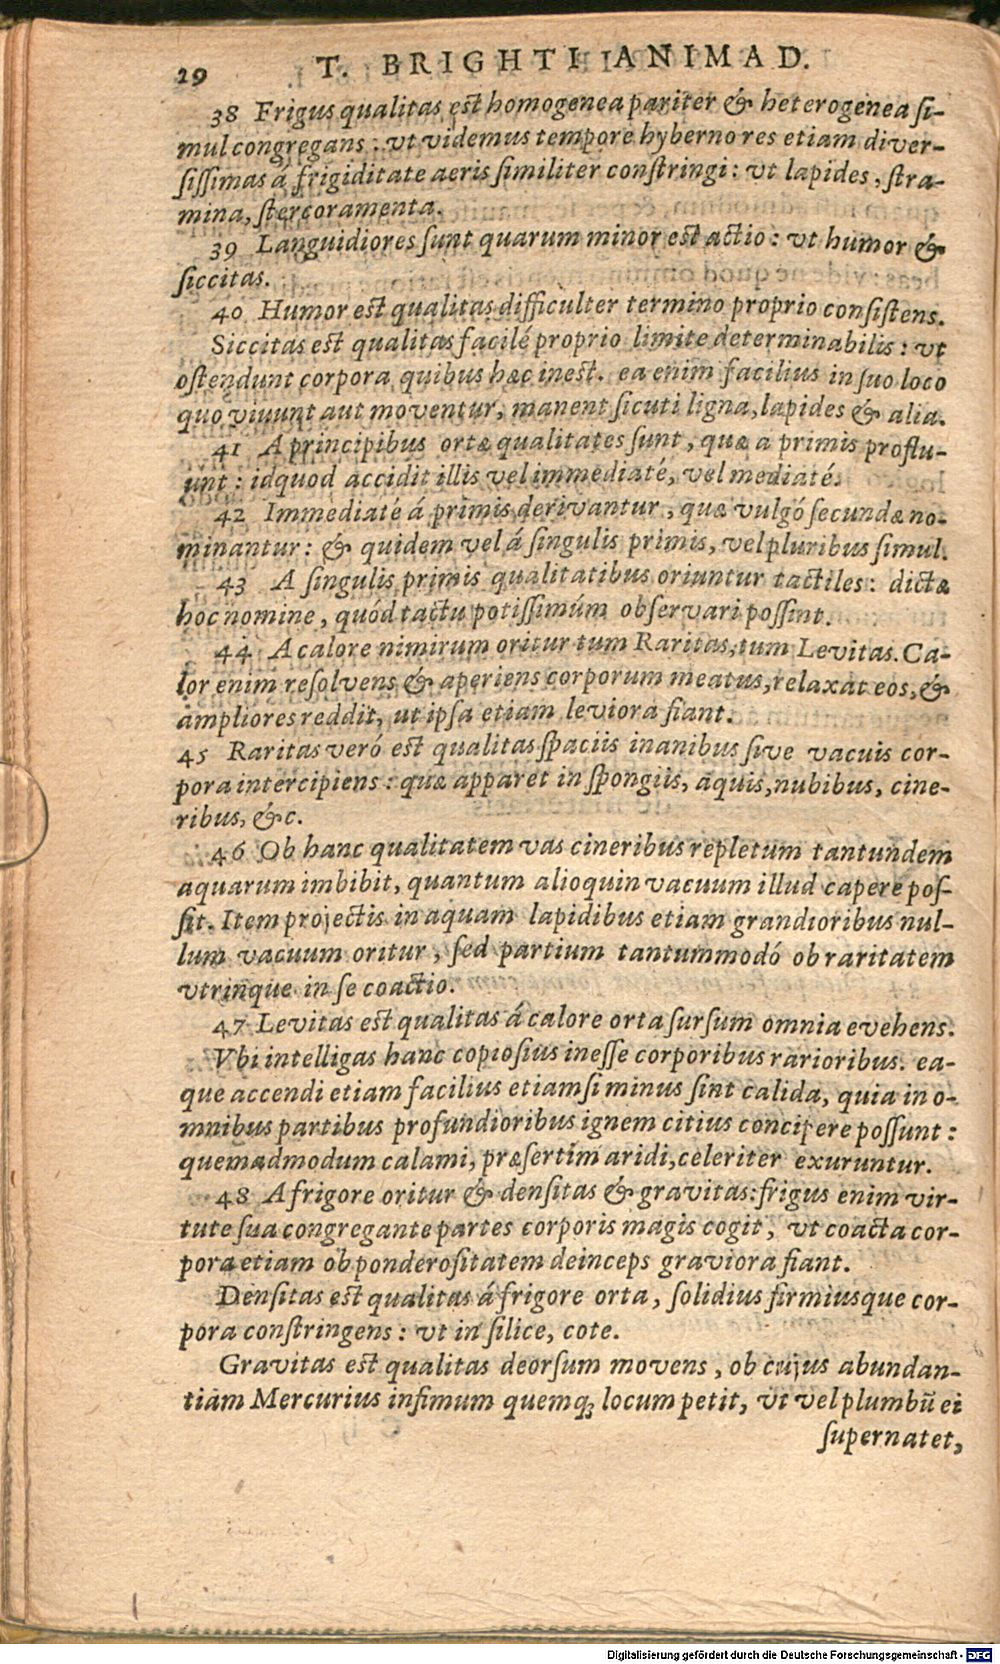 29 T. BRIGHTI ANIMAD.
38 Frigus qualitas est homogenea pariter & heterogenea si-
mul congregans : vt videmus tempore hyberno res etiam diver-
sissimas á frigiditate aeris similiter constringi : vt lapides, stra-
mina, stercoramenta.
39 Languidiores sunt quarum minor est actio : vt humor &
siccitas.
40 Humor est qualitas difficulter termino proprio consistens.
Siccitas est qualitas facilé proprio limite determinabilis : vt
ostendunt corpora quibus hæc inest. ea enim facilius in suo loco
quo vivunt aut moventur, manent sicuti ligna, lapides & alia.
41 A principibus ortæ qualitates sunt, quæ a primis proflu-
unt : idquod accidit illis vel immediaté, vel mediaté.
42 Immediaté á primis derivantur, quæ vulgó secundæ no-
minantur : & quidem vel á singulis primis, vel pluribus simul.
43 A singulis primis qualitatibus oriuntur tactiles : dictæ
hoc nomine, quód tactu potissimúm observari possint.
44 A calore nimirum oritur tum Raritas, tum Levitas. Ca-
lor enim resolvens & aperiens corporum meatus, relaxat eos, &
ampliores reddit, ut ipsa etiam leviora fiant.
45 Raritas veró est qualitas spaciis inanibus sive vacuis cor-
pora intercipiens : quæ apparet in spongiis, aquis, nubibus, cine-
ribus, &c.
46 Ob hanc qualitatem vas cineribus repletum tantundem
aquarum imbibit, quantum alioquin vacuum illud capere pos-
sit. Item projectis in aquam lapidibus etiam grandioribus nul-
lum vacuum oritur, sed partium tantummodó ob raritatem
vtrinque in se coactio.
47 Levitas est qualitas á calore orta sursum omnia evehens.
Vbi intelligas hanc copiosius inesse corporibus rarioribus. ea-
que accendi etiam facilius etiamsi minus sint calida, quia in o-
mnibus partibus profundioribus ignem citius concipere possunt :
quemadmodum calami, præsertim aridi, celeriter exuruntur.
48 A frigore oritur & densitas & gravitas : frigus enim vir-
tute sua congregante partes corporis magis cogit, vt coacta cor-
pora etiam ob ponderositatem deinceps graviora fiant.
Densitas est qualitas á frigore orta, solidius firmiusque cor-
pora constringens : vt in silice, cote.
Gravitas est qualitas deorsum movens, ob cujus abundan-
tiam Mercurius infimum quemq; locum petit, vt vel plumbū ei
supernatet,
Digitalisierung gefördert durch die Deutsche Forschungsgemeinschaft - DFG